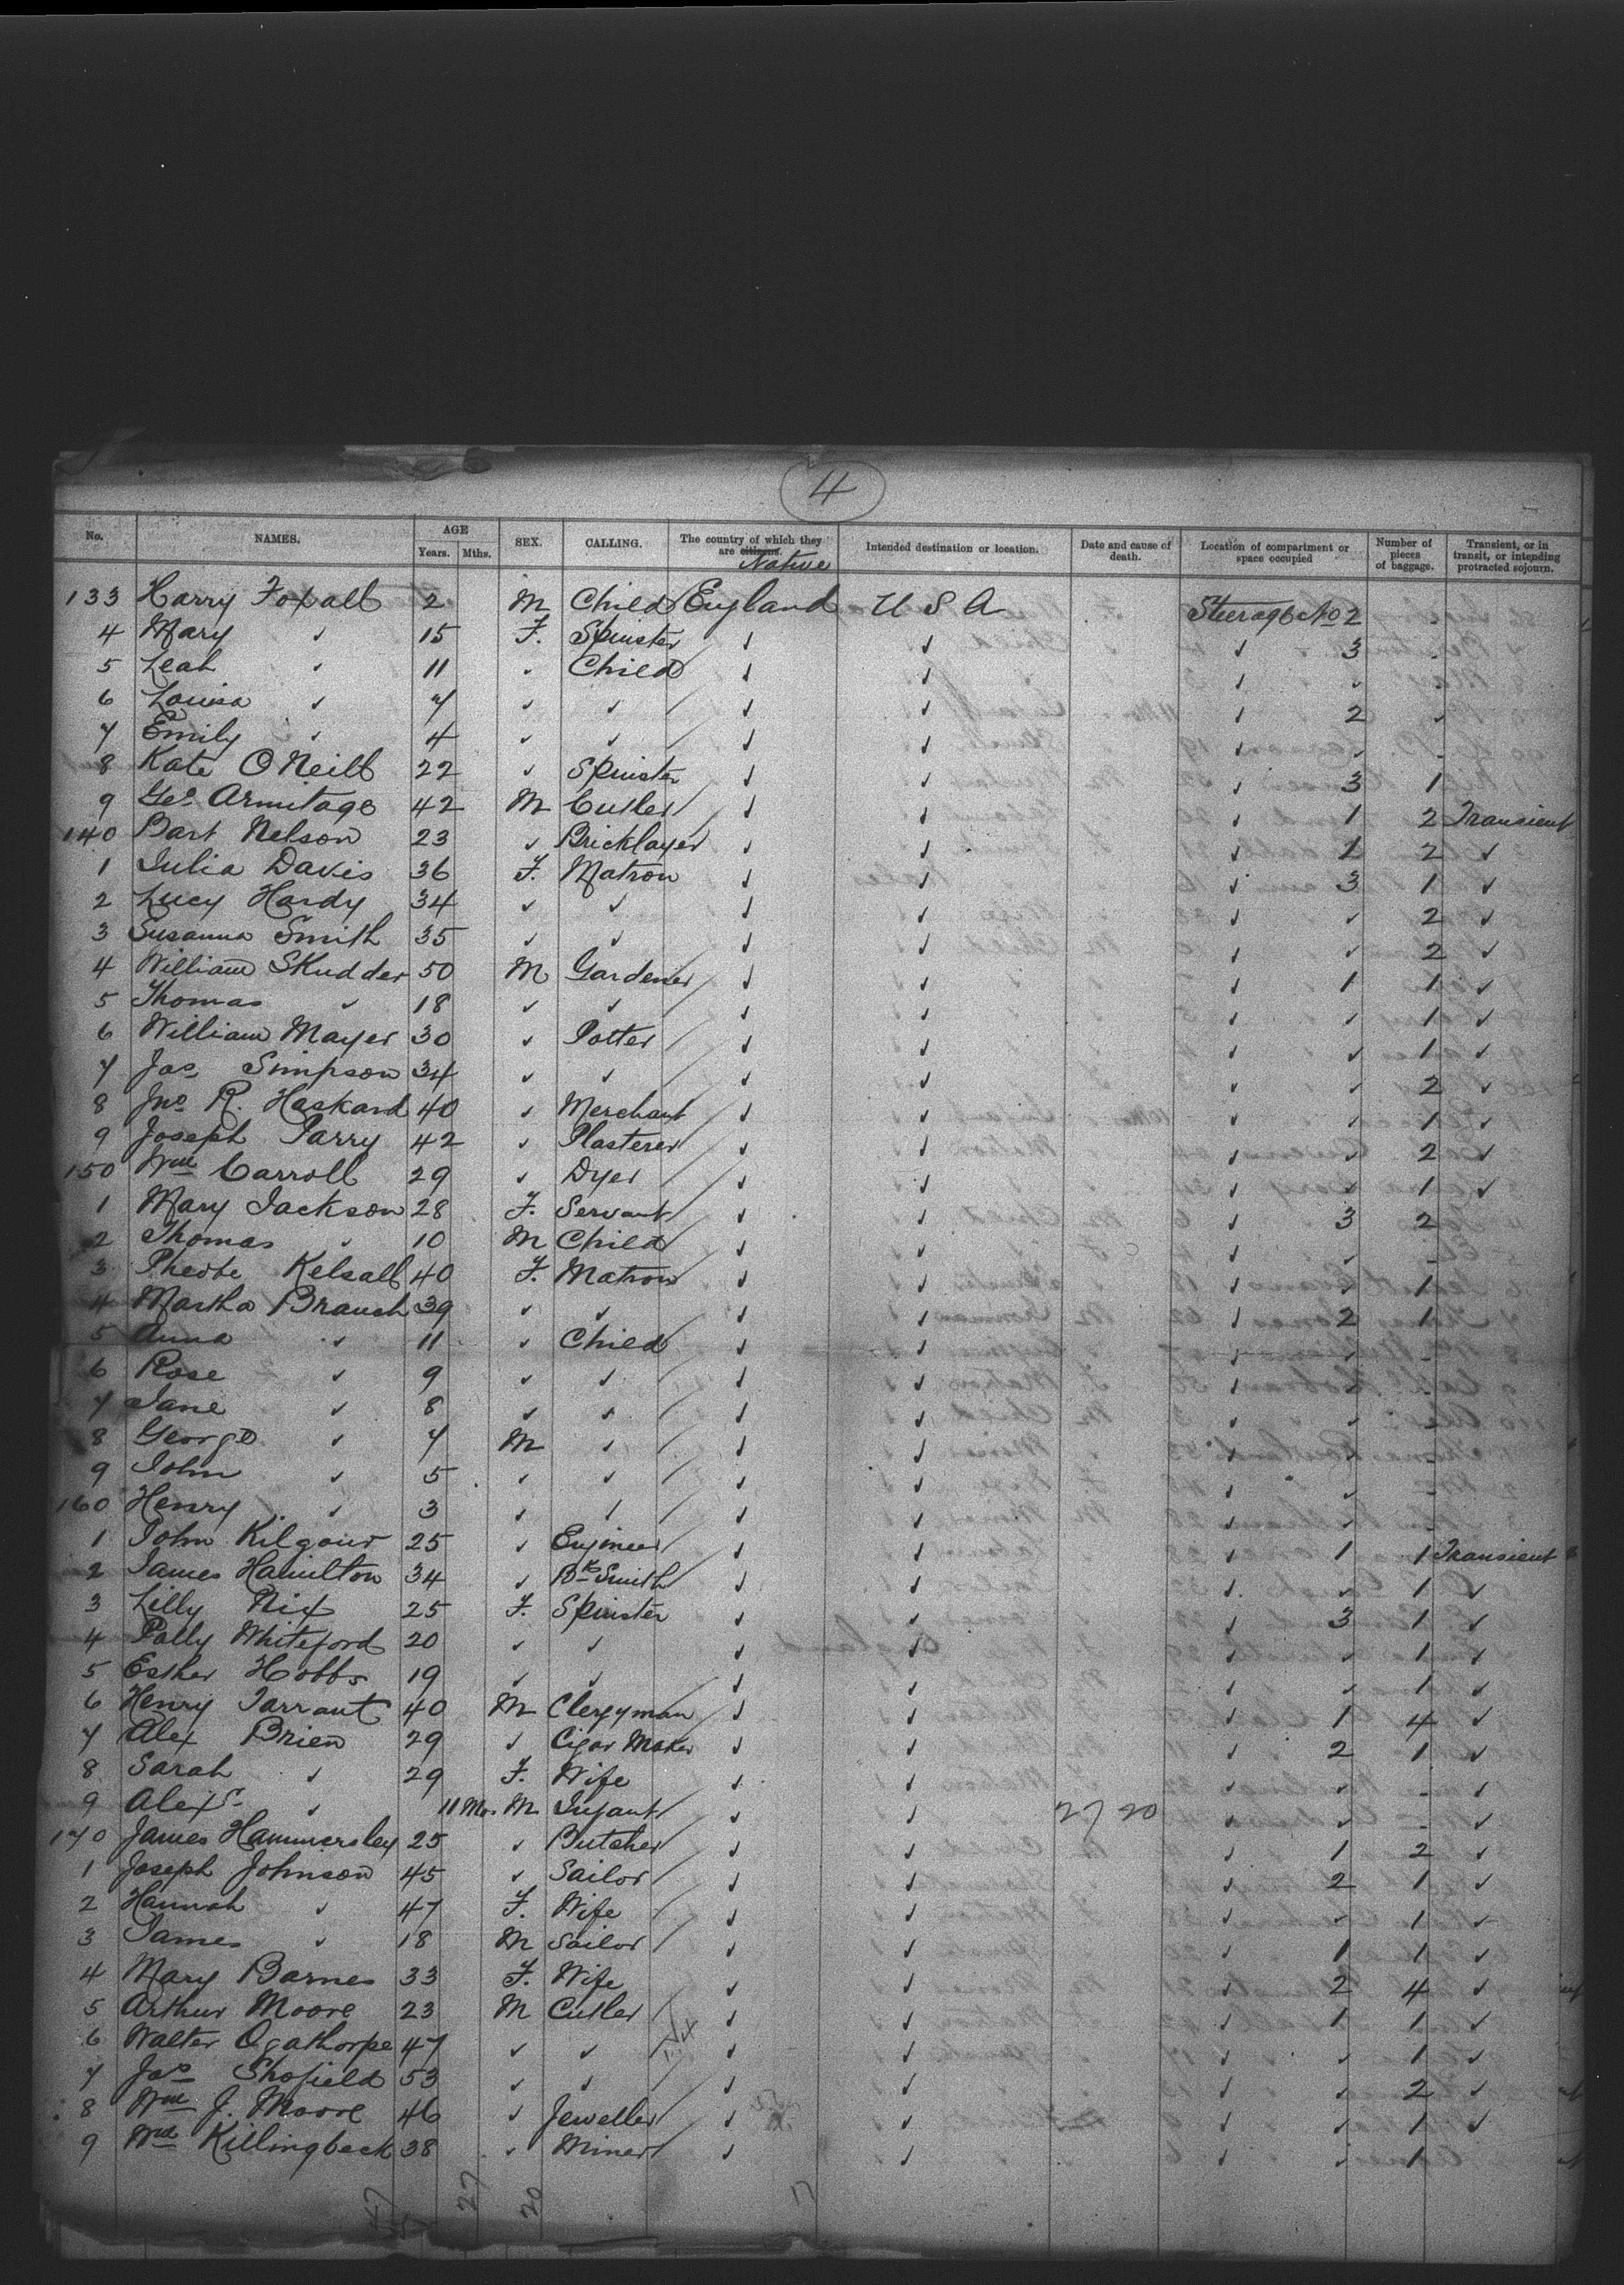 4
No. NAMES. AGE Years. Mths. SEX. CALLING. The country of which they are citizens. Native Intended destination or location. Date and cause of death. Location of compartment or space occupied Number of pieces of baggage. Transient, or in transit, or intending protracted sojourn.
133 Harry Foxall 2 M Child England U S A Steerage No 2 -
4 Mary ✓ 15 F. Spinster ✓ ✓ ✓ 3 -
5 Leah ✓ 11 ✓ Child ✓ ✓ ✓ ✓ -
6 Louisa ✓ 7 ✓ ✓ ✓ ✓ ✓ 2 ✓
7 Emily ✓ 4 ✓ ✓ ✓ ✓ ✓ ✓ -
8 Kate O Neill 22 ✓ Spinster ✓ ✓ ✓ 3 1
9 Geo. Armitage 42 M Cutler ✓ ✓ ✓ 1 2 Transient
140 Bart Nelson 23 ✓ Bricklayer ✓ ✓ ✓ 1 2 ✓
1 Julia Davis 36 F. Matron ✓ ✓ ✓ 3 1 ✓
2 Lucy Hardy 34 ✓ ✓ ✓ ✓ ✓ ✓ 2 ✓
3 Susanna Smith 35 ✓ ✓ ✓ ✓ ✓ ✓ 2 ✓
4 William Skudder 50 M Gardener ✓ ✓ ✓ 1 1 ✓
5 Thomas ✓ 18 ✓ ✓ ✓ ✓ ✓ ✓ 1 ✓
6 William Mayer 30 ✓ Potter ✓ ✓ ✓ ✓ 1 ✓
7 Jas Simpson 34 ✓ ✓ ✓ ✓ ✓ ✓ 2 ✓
8 Jno R. Haskard 40 ✓ Merchant ✓ ✓ ✓ ✓ 1 ✓
9 Joseph Parry 42 ✓ Plasterer ✓ ✓ ✓ ✓ 2 ✓
150 Wm Carroll 29 ✓ Dyer ✓ ✓ ✓ ✓ 1 ✓
1 Mary Jackson 28 F. Servant ✓ ✓ ✓ 3 2
2 Thomas ✓ 10 M Child ✓ ✓ ✓ ✓ -
3 Pheobe Kelsall 40 F. Matron ✓ ✓ ✓ ✓ 1
4 Martha Branch 39 ✓ ✓ ✓ ✓ ✓ 2 1
5 Anna ✓ 11 ✓ Child ✓ ✓ ✓ ✓ -
6 Rose ✓ 9 ✓ ✓ ✓ ✓ ✓ ✓ -
7 Jane ✓ 8 ✓ ✓ ✓ ✓ ✓ ✓ -
8 George ✓ 7 M ✓ ✓ ✓ ✓ ✓ -
9 John ✓ 5 ✓ ✓ ✓ ✓ ✓ ✓ -
160 Henry ✓ 3 ✓ ✓ ✓ ✓ ✓ ✓ -
1 John Kilgour 25 ✓ Engineer ✓ ✓ ✓ 1 1 Transient
2 James Hamilton 34 ✓ Bk Smith ✓ ✓ ✓ ✓ 1 ✓
3 Lilly Nix 25 F. Spinster ✓ ✓ ✓ 3 1 ✓
4 Polly Whiteford 20 ✓ ✓ ✓ ✓ ✓ ✓ 1 ✓
5 Esther Hobbs 19 ✓ ✓ ✓ ✓ ✓ ✓ 1 ✓
6 Henry Tarrant 40 M Clergyman ✓ ✓ ✓ 1 4 ✓
7 Alex Brien 29 ✓ Cigar Maker ✓ ✓ ✓ 2 1 ✓
8 Sarah ✓ 29 F. Wife ✓ ✓ ✓ ✓ - ✓
9 Alexr ✓ 11 Mos M Infant ✓ ✓ 27 20 ✓ ✓ - ✓
170 James Hammersley 25 ✓ Butcher ✓ ✓ ✓ 1 2 ✓
1 Joseph Johnson 45 ✓ Sailor ✓ ✓ ✓ 2 1 ✓
2 Hannah ✓ 47 F. Wife ✓ ✓ ✓ ✓ 1 ✓
3 James ✓ 18 M Sailor ✓ ✓ ✓ 1 1 ✓
4 Mary Barnes 33 F. Wife ✓ ✓ ✓ 2 4 ✓
5 Arthur Moore 23 M Cutler ✓ ✓ ✓ 1 1 ✓
6 Walter Ogathorpe 47 ✓ ✓ ✓ ✓ ✓ ✓ 1 ✓
7 Jas Shofield 53 ✓ ✓ ✓ ✓ ✓ ✓ 2 ✓
8 Wm J. Moore 46 ✓ Jeweller ✓ ✓ ✓ ✓ 1 ✓
9 Wm Killingbeck 38 ✓ Miner ✓ ✓ ✓ ✓ 1
27 20